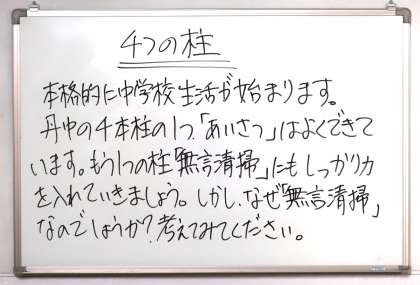 4つの柱
本格的に中学校生活が始まります。
丹中の千本柱の1つ「あいさつ」はよくできて
います。もう1つの柱「無言清掃」にもしっかり力
を入れていきましょう。しかし、なぜ「無言清掃」
なのでしょうか?考えてみてください。